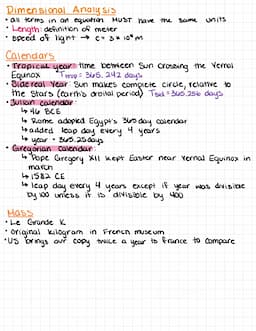 Dimensional Analysis
• all terms in an equation MUST have the same units
• Length: definition of meter
• speed of light → c = 3 × 10⁸ m
Calendars
• Tropical year: time between Sun crossing the Vernal
Equinox Ttrop = 365.242 days
• Sidereal Year: Sun makes complete circle, relative to
the stars (Earth's orbital period) Tsid = 365.256 days
• Julian calendar
↳ 46 BCE
↳ Rome adopted Egypt's 365 day calendar
↳ added leap day every 4 years
↳ year = 365.25 days
• Gregorian calendar:
↳ Pope Gregory XII kept Easter near Vernal Equinox in
march
↳ 1582 CE
↳ leap day every 4 years except if year was divisible
by 100 unless it is divisible by 400
Mass
• Le Grande K
• original kilogram in French museum
• US brings our copy twice a year to France to compare